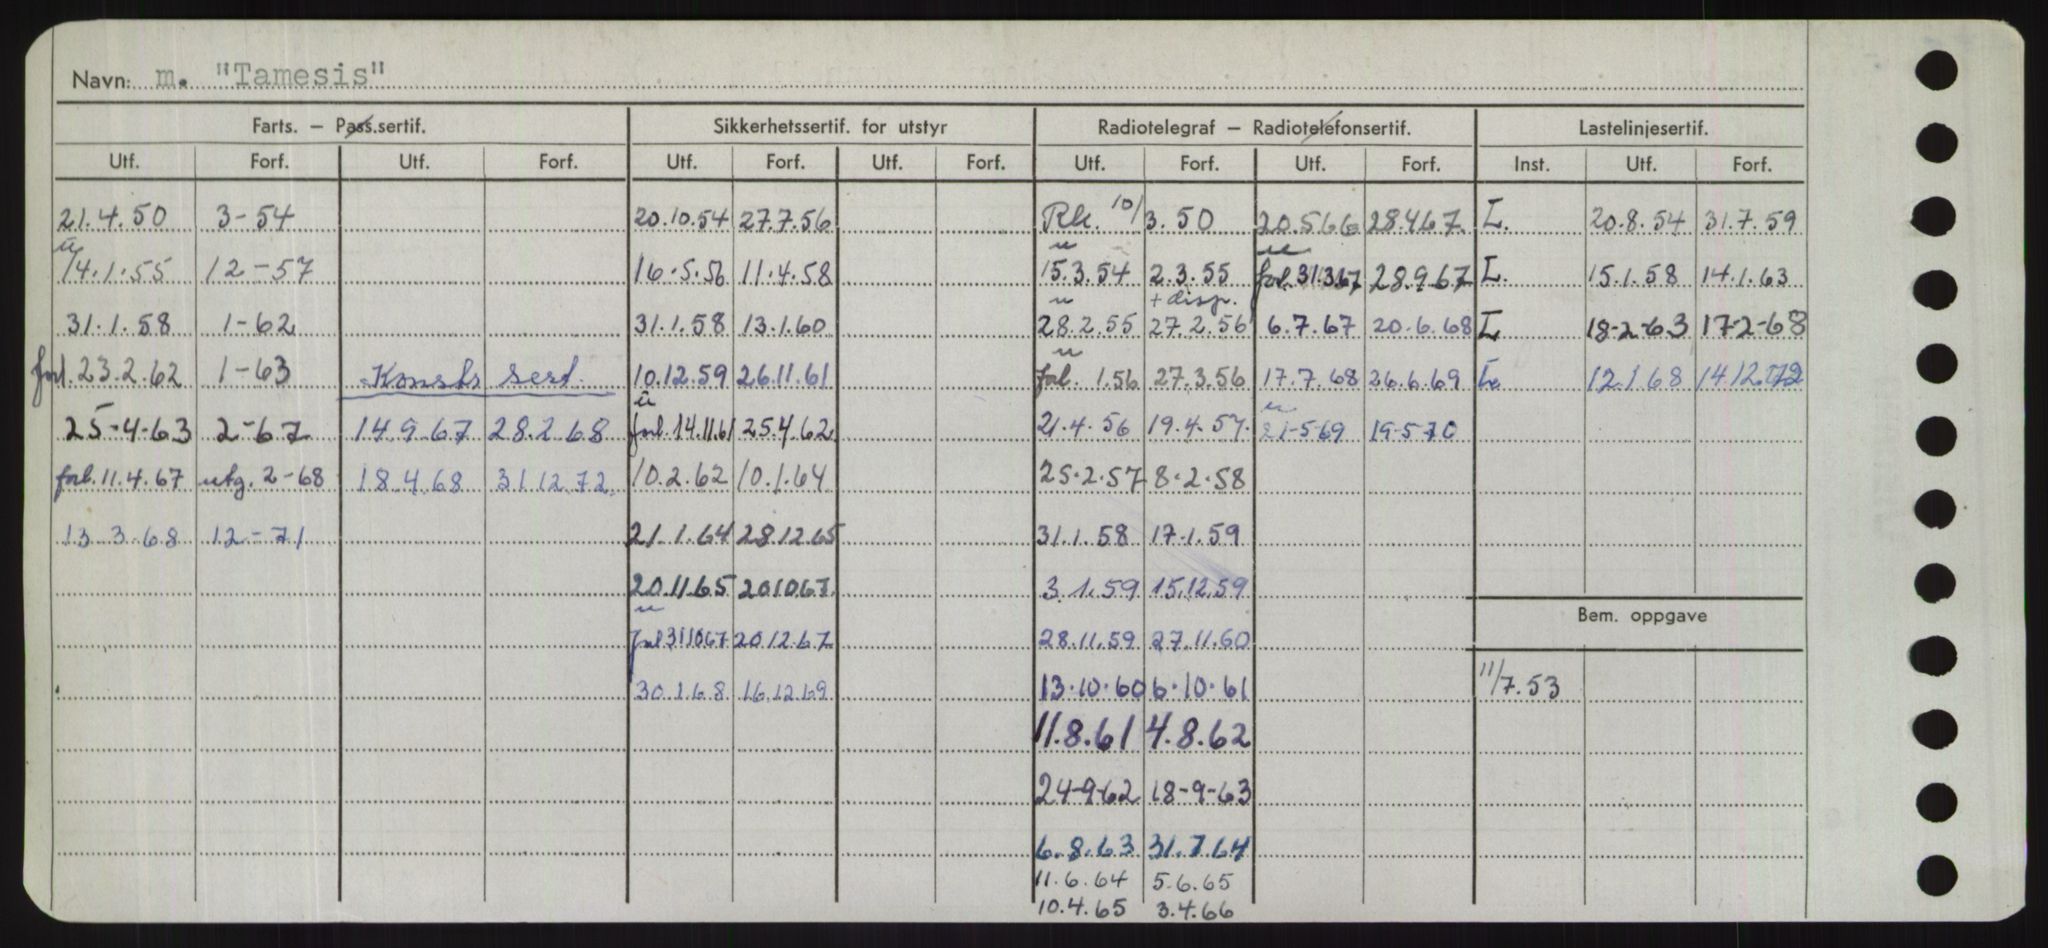 Navn: m. "Tamesis"
Farts. – Pass.sertif. Sikkerhetssertif. for utstyr Radiotelegraf – Radiotelefonsertif. Lastelinjesertif.
Utf. Forf. Utf. Forf. Utf. Forf. Utf. Forf. Utf. Forf. Utf. Forf. Inst. Utf. Forf.
21.4.50 3-54 20.10.54 27.7.56 Rk. 10/3.50 20.5.66 28.4.67 L. 20.8.54 31.7.59
u u u
14.1.55 12-57 16.5.56 11.4.58 15.3.54 2.3.55 forl. 31.3.67 28.9.67 L. 15.1.58 14.1.63
u + disp.
31.1.58 1-62 31.1.58 13.1.60 28.2.55 27.2.56 6.7.67 20.6.68 L 18-2-63 17-2-68
u
forl. 23.2.62 1-63 Konstr sert. 10.12.59 26.11.61 forl. 1.56 27.3.56 17.7.68 26.6.69 L. 12.1.68 14.12.72
u u
25-4-63 2-67 14.9.67 28.2.68 forl. 14.11.61 25.4.62 21.4.56 19.4.57. 21-5-69 19-5-70
forl. 11.4.67 utg. 2-68 18.4.68 31.12.72. 10.2.62 10.1.64 25.2.57 8.2.58
13.3.68 12-71 21.1.64 28.12.65 31.1.58 17.1.59
20.11.65 20.10.67. 3.1.59 15.12.59
u
Bem. oppgave
forl 31.10.67 20.12.67 28.11.59 27.11.60
30.1.68 16.12.69 13.10.60 6.10.61 11/7.53
11.8.61 4.8.62
24-9-62 18-9-63
6.8.63 31.7.64
11.6.64 5.6.65
10.4.65 3.4.66